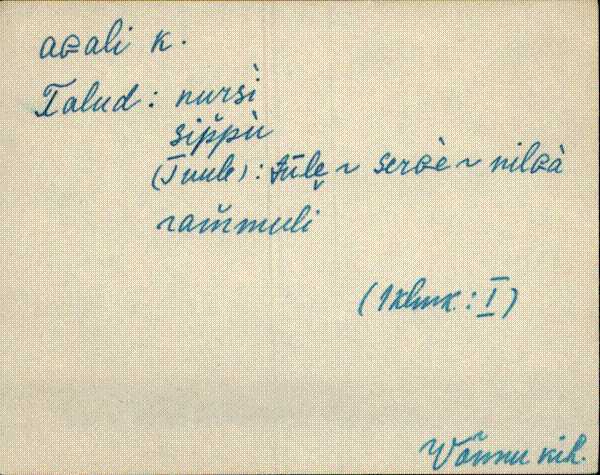 aɢali k.
Talud: nursì
sip̆pù
(Tuule): tūlę ~ serɢè ~ nilɢà
ram̆muli
(1 klmk.: I)
Võnnu kih.